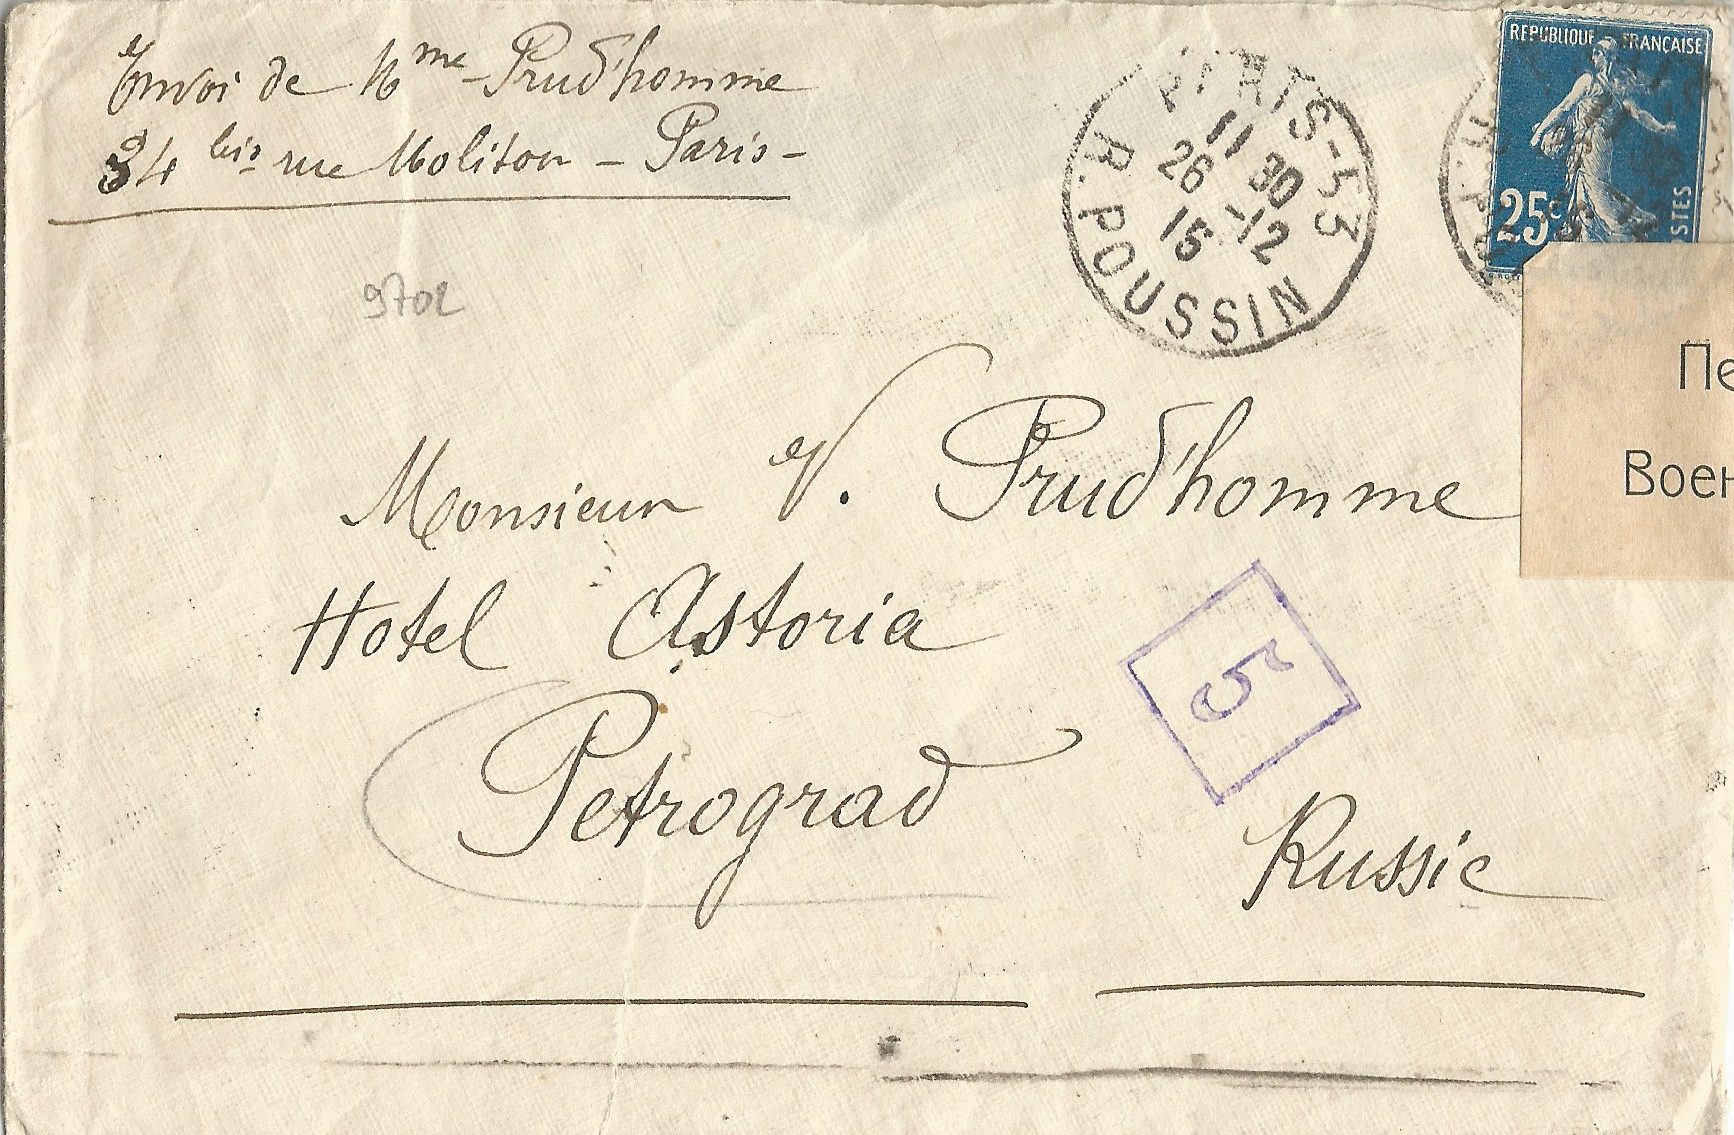 Envoi de Mme Prud'homme
34 bis rue Molitor - Paris -
9702
PARIS-53
11 30
26 12
15
R. POUSSIN
REPUBLIQUE FRANÇAISE
25c
POSTES
Пе
Воен
Monsieur V. Prud'homme
Hotel Astoria
5
Petrograd
Russie